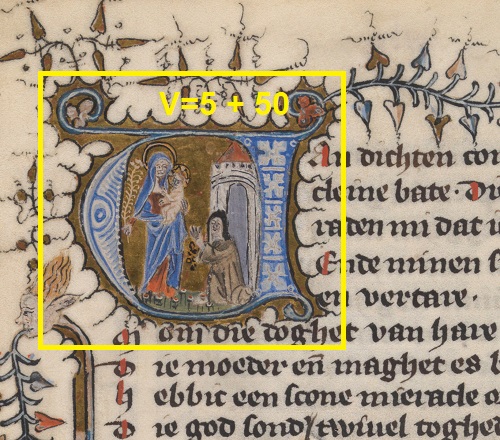 V=5 + 50
An dichten
cleine bate. Die
raden mi dat
Ende minen
en vertare.
om die doghet van hare
ie moeder en̄ maghet es
h ebbic een scone mieracle
D ie god sond' twiuel toghe